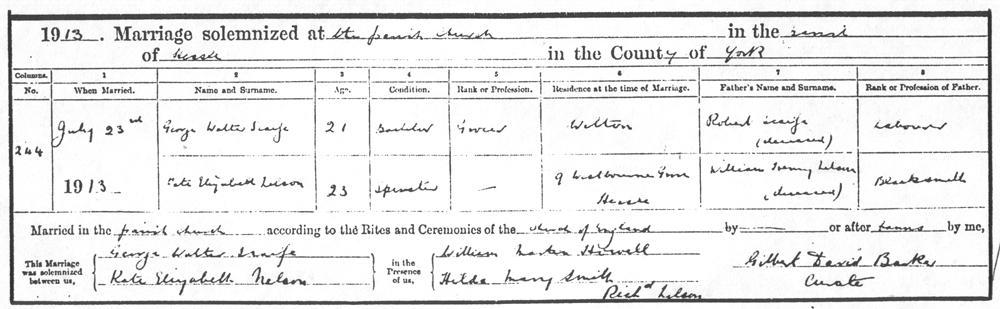 1913. Marriage solemnized at the parish church in the
of Hessle in the County of York
Columns. 1 2 3 4 5 6 7 8
No. When Married. Name and Surname. Age. Condition. Rank or Profession. Residence at the time of Marriage. Father's Name and Surname. Rank or Profession of Father.
244 July 23rd George Walter Scaife 21 Bachelor Grocer Welton Robert Scaife Labourer
(deceased)
1913 Kate Elizabeth 23 Spinster — 9 Westbourne Grove William Henry Blacksmith
Hessle (deceased)
Married in the parish church according to the Rites and Ceremonies of the Church of England by — or after banns by me,
This Marriage was solemnized between us, George Walter Scaife in the Presence of us, William Howell Gilbert David Barker
Kate Elizabeth Nelson Hilda Mary Smith Curate
Richd